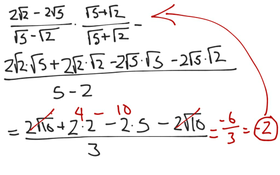 (2√2 - 2√5)/(√5 - √2) · (√5 + √2)/(√5 + √2) =
(2√2·√5 + 2√2·√2 - 2√5·√5 - 2√5·√2)/(5 - 2)
= (2√10 + 2·2 - 2·5 - 2√10)/3 = -6/3 = -2
4 - 10